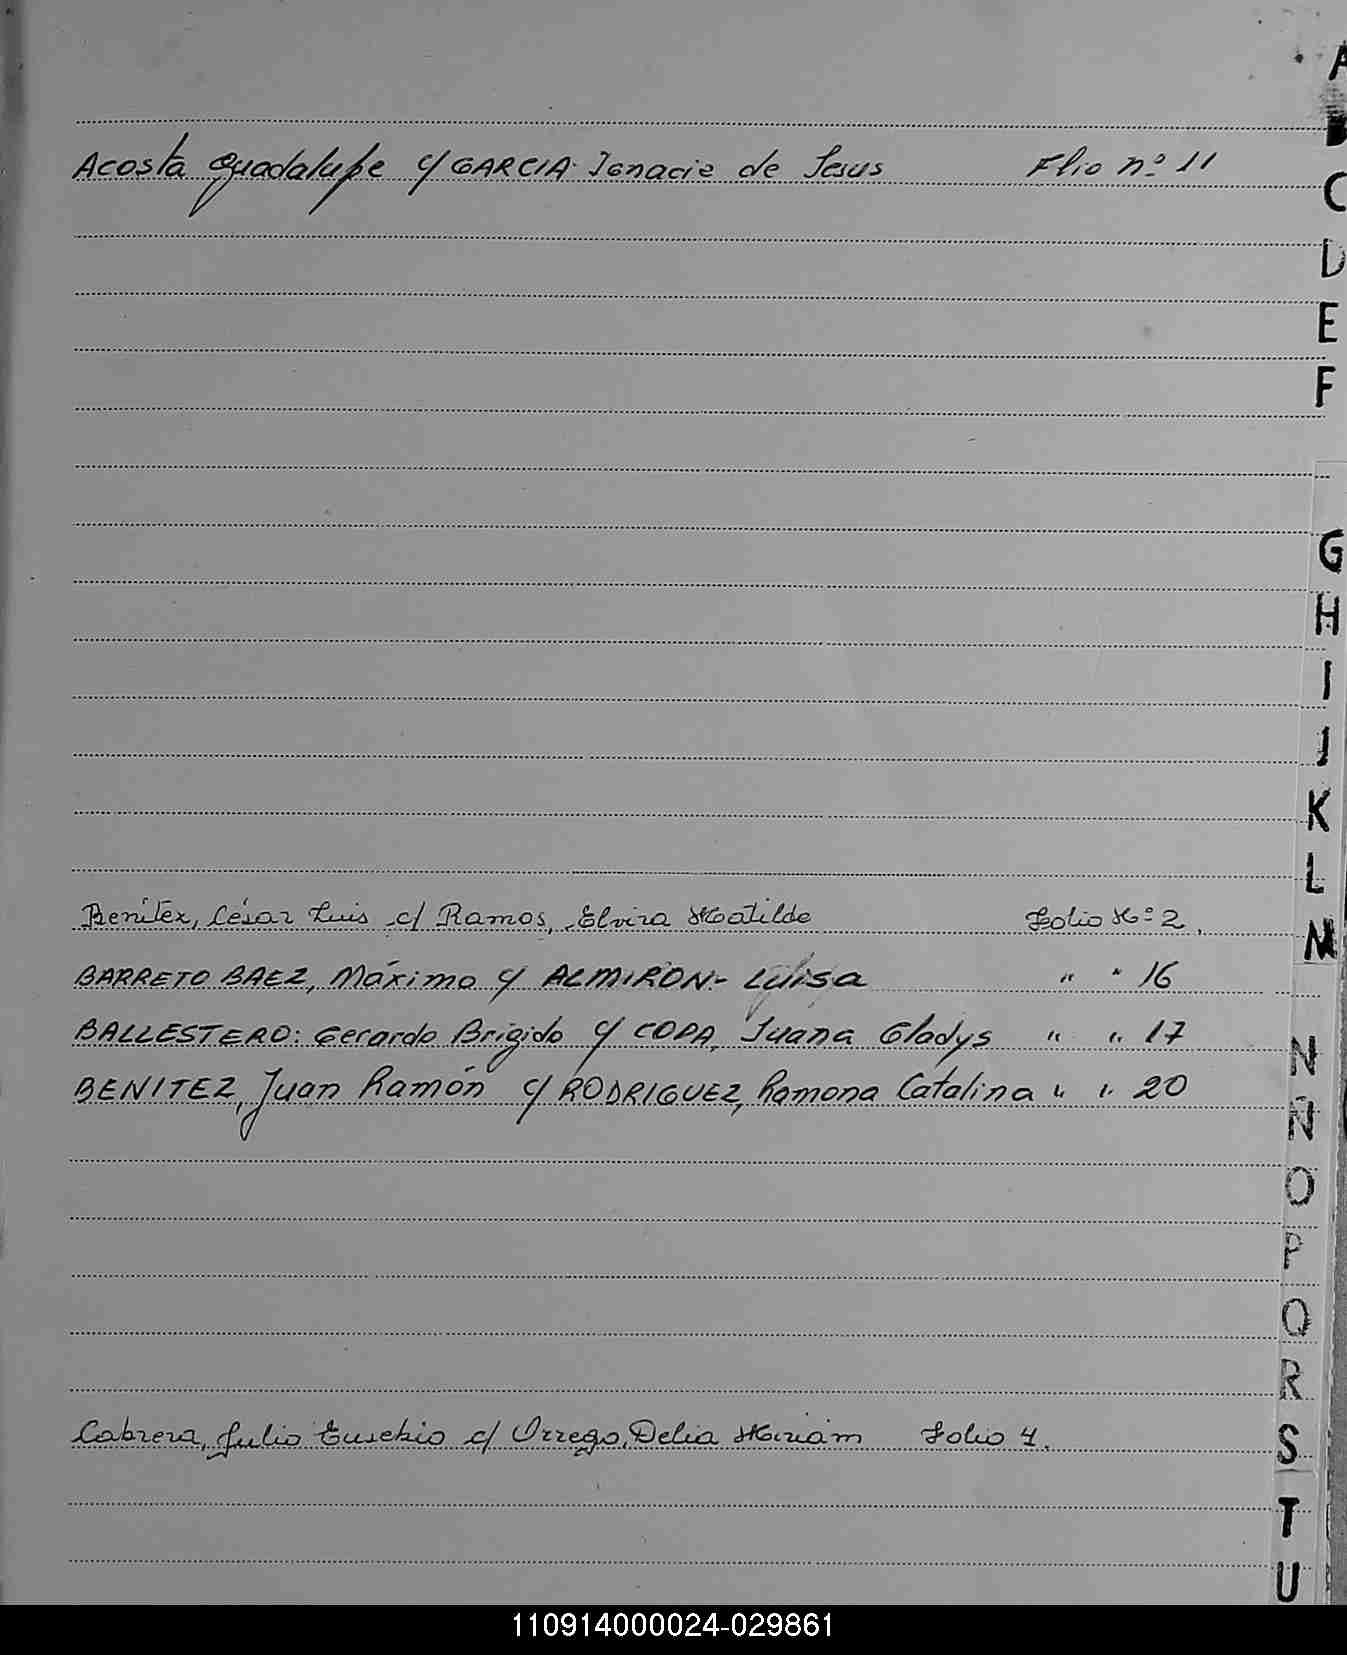 Acosta Guadalupe c/ GARCIA Ignacio de Jesus Flio nº 11
Benitez, César Luis c/ Ramos, Elvira Matilde Folio Nº 2.
BARRETO BAEZ, Máximo c/ ALMIRON- Luisa " " 16
BALLESTERO: Gerardo Brigido c/ COPA, Juana Gladys " " 17
BENITEZ, Juan Ramón c/ RODRIGUEZ, Ramona Catalina " " 20
Cabrera, Julio Eusebio c/ Orrego, Delia Miriam Folio
A
C
D
E
F
G
H
I
J
K
L
M
N
Ñ
O
P
Q
R
S
T
U
110914000024-029861